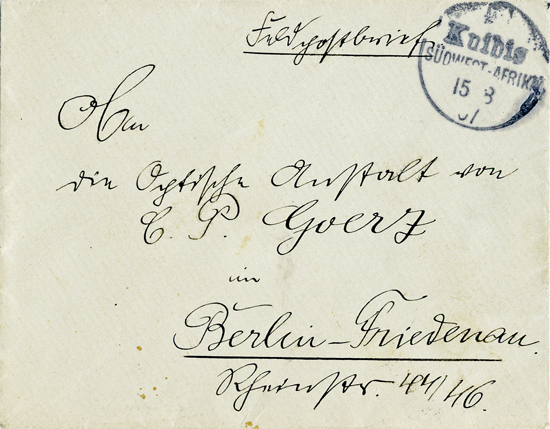 Feldpostbrief
Kuibis
SÜDWEST-AFRIKA
15 8
07
An
die Optische Anstalt von
C. P. Goerz
in
Berlin-Friedenau.
Rheinstr. 44/46.